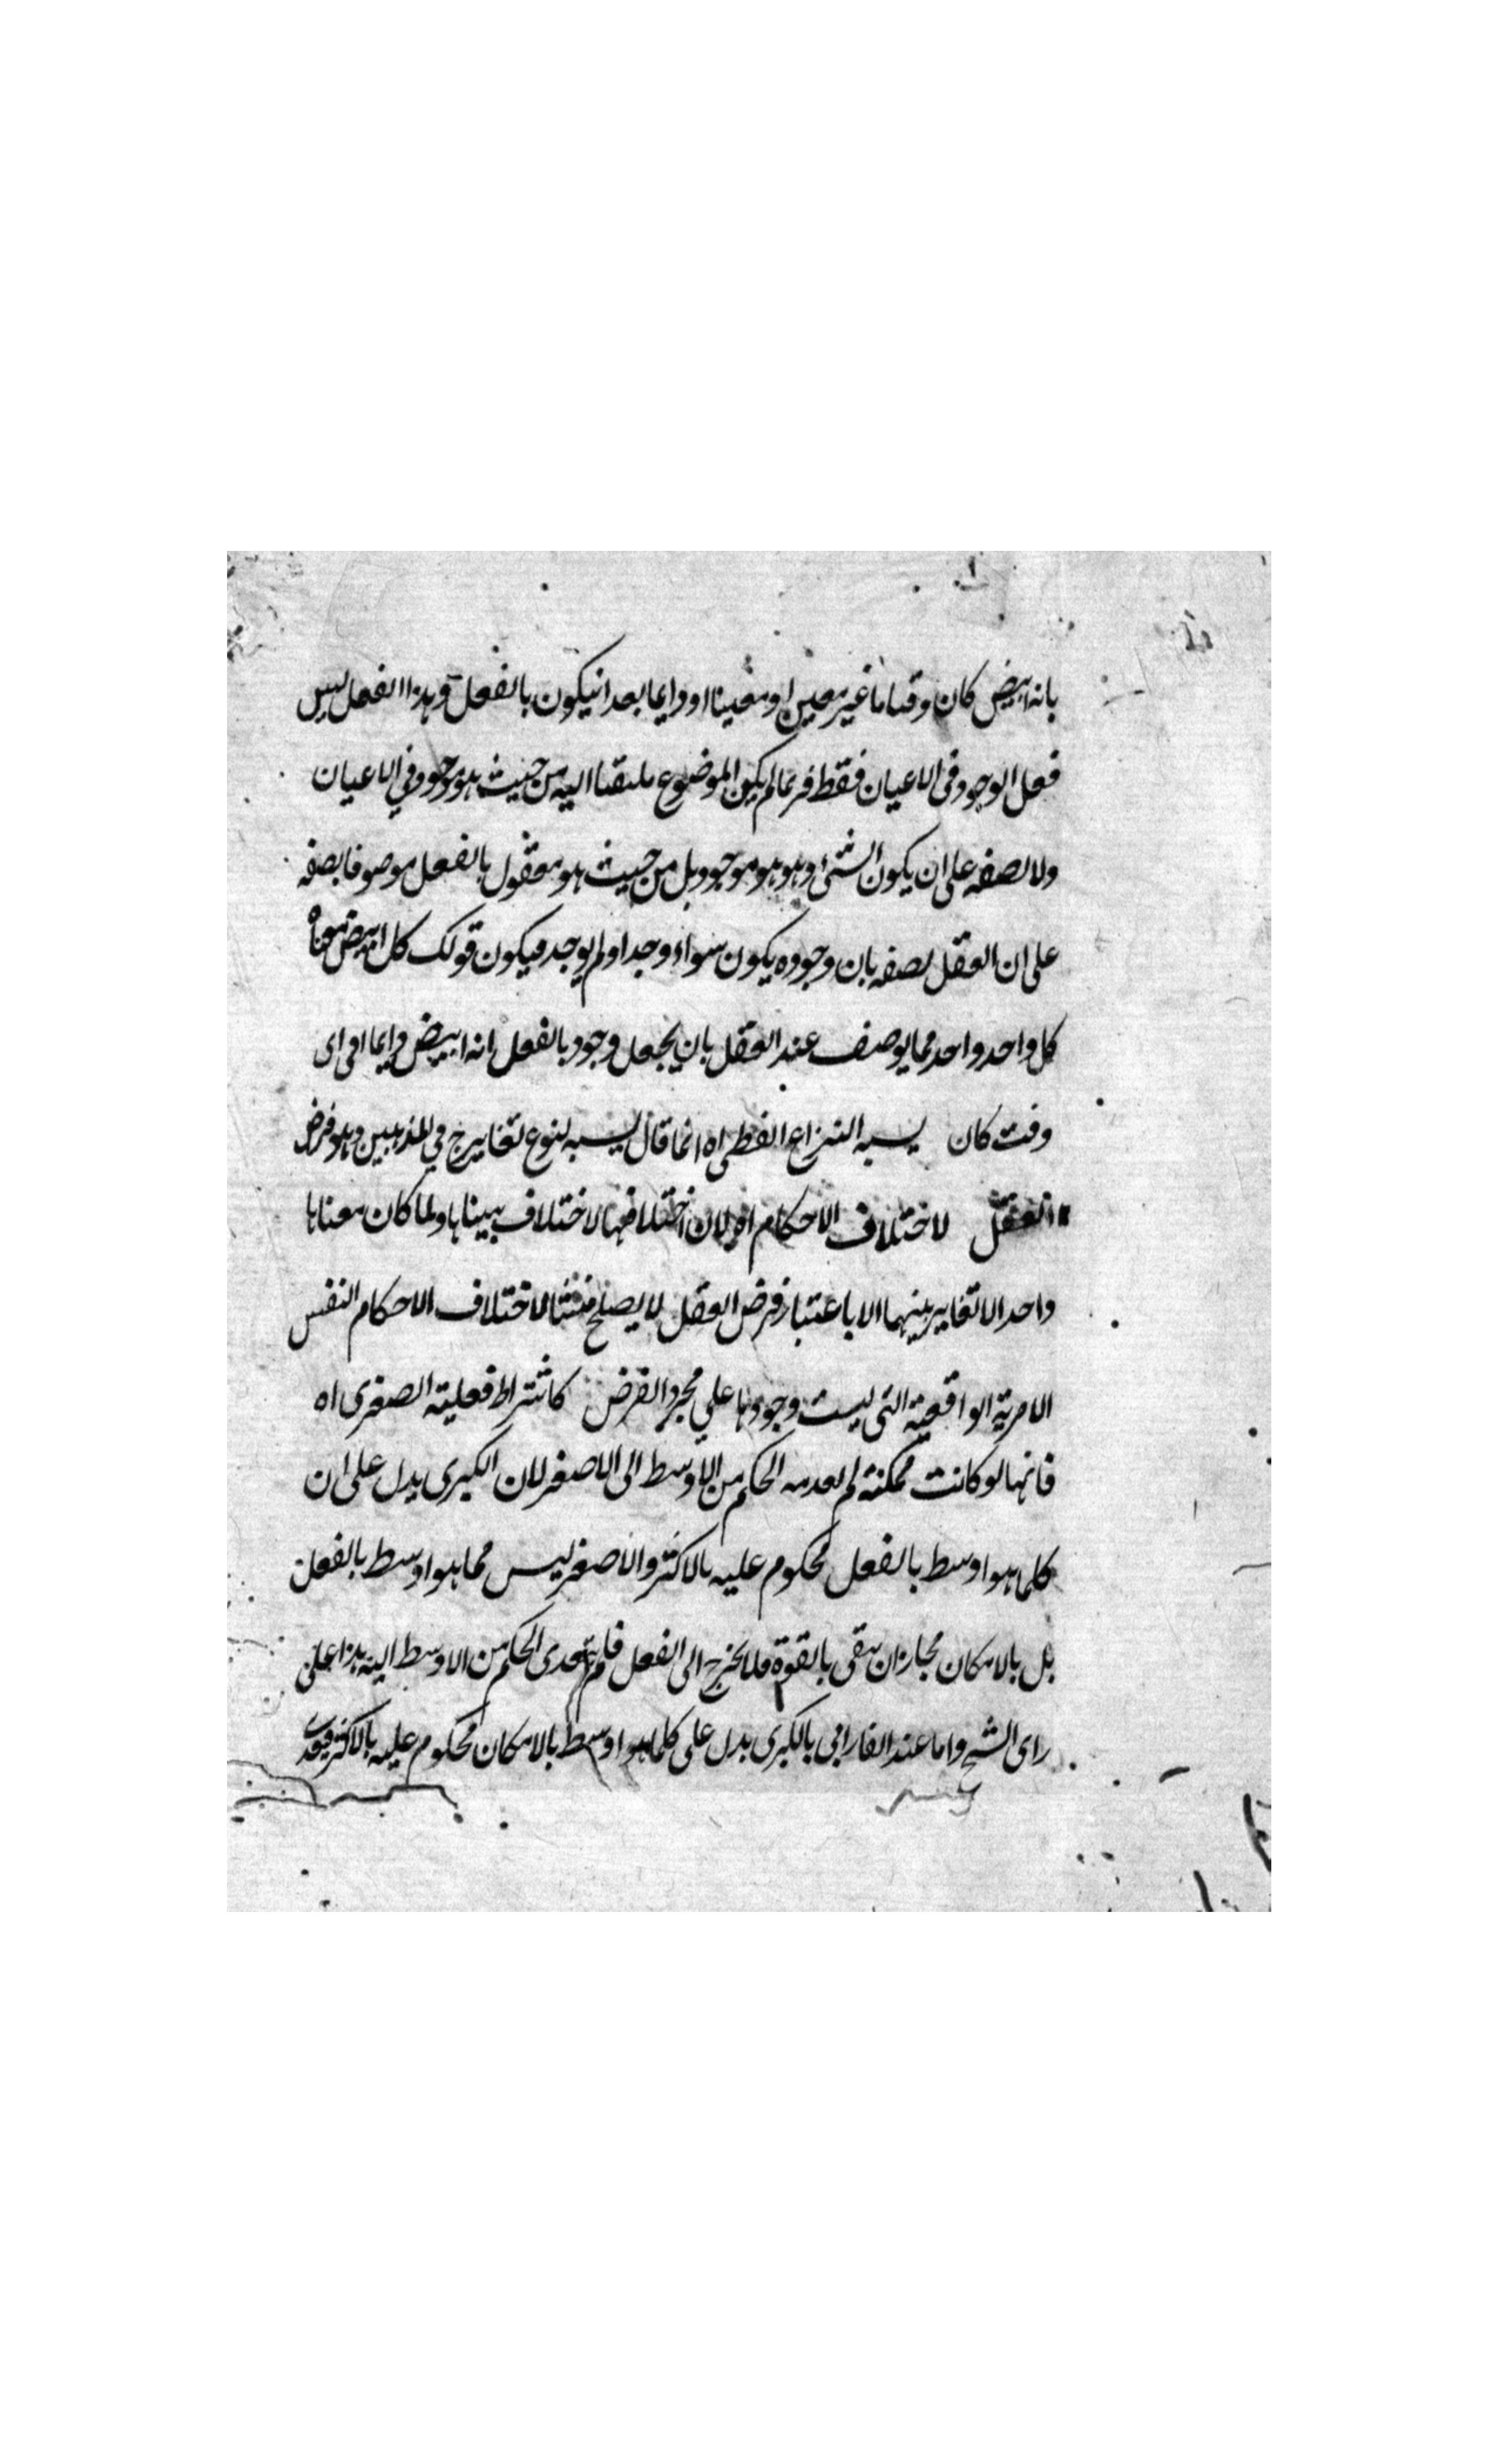 بانه ابيض كان وقتا ما غير معين او معينا او دايما بعد انيكون بالفعل وهذا الفعل ليس
فعل الوجود فى الاعيان فقط فربما لم يكن الموضوع ملتفتا اليه من حيث هو موجود في الاعيان
ولا بصفه على ان يكون الشئ وهو هو موجود بل من حيث هو معقول بالفعل موصوفا بصفه
على ان العقل يصفه بان وجوده يكون سواء وجد او لم يوجد فيكون قولك كل ابيض معناه
كل واحد واحد مما يوصف عند العقل بان يجعل وجود بالفعل انه ابيض دايما او اى
وقت كان يسبه النزاع الفظى اه انما قال يسبه لنوع تغاير ح في المذهبين وهو فرض
العقل لاختلاف الاحكام اه لان اختلافها لاختلاف بينها ولما كان معناها
واحد الا تغاير بينهما الا باعتبار فرض العقل لا يصلح منشئا لاختلاف الاحكام النفس
الامرية الواقعية التى ليست وجودها علي مجرد الفرض كاشتراط فعلية الصغرى اه
فانها لو كانت ممكنة لم يعد الحكم من الاوسط الى الاصغر لان الكبرى يدل على ان
كلما هو اوسط بالفعل محكوم عليه بالاكثر والاصغر ليس مما هو اوسط بالفعل
بل بالامكان فجاز ان يبقى بالقوة فلا يخرج الى الفعل فلم يتعدى الحكم من الاوسط اليه هذا على
راى الشيخ واما عند الفارابى بالكبرى يدل على كلما هو اوسط بالامكان محكوم عليه بالاكثر